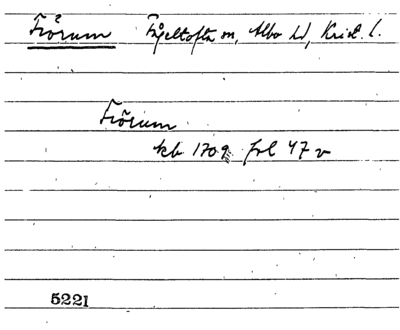 Fiörum Fågeltofta sn, Albo hd, Krist. l.
Fiörum
kb 1709 fol 47 v
5221